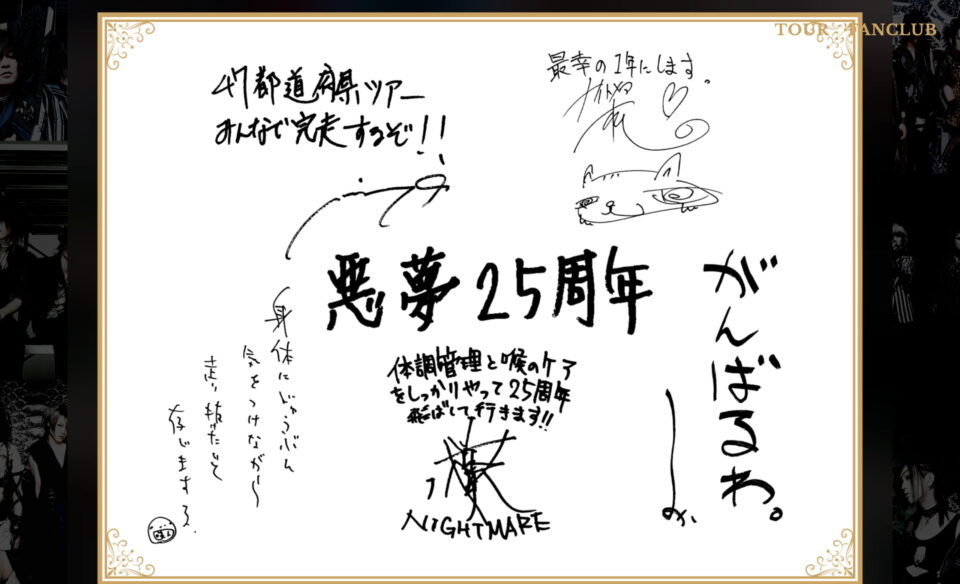 TOUR FANCLUB
47都道府県ツアー
みんなで完走するぞ!!
最幸の1年にします。
悪夢25周年
がんばるわ。
体調管理と喉のケア
をしっかりやって25周年
飛ばして行きます!!
NIGHTMARE
身体にじゅうぶん
気をつけながら
走り抜けたいと
存じまする.